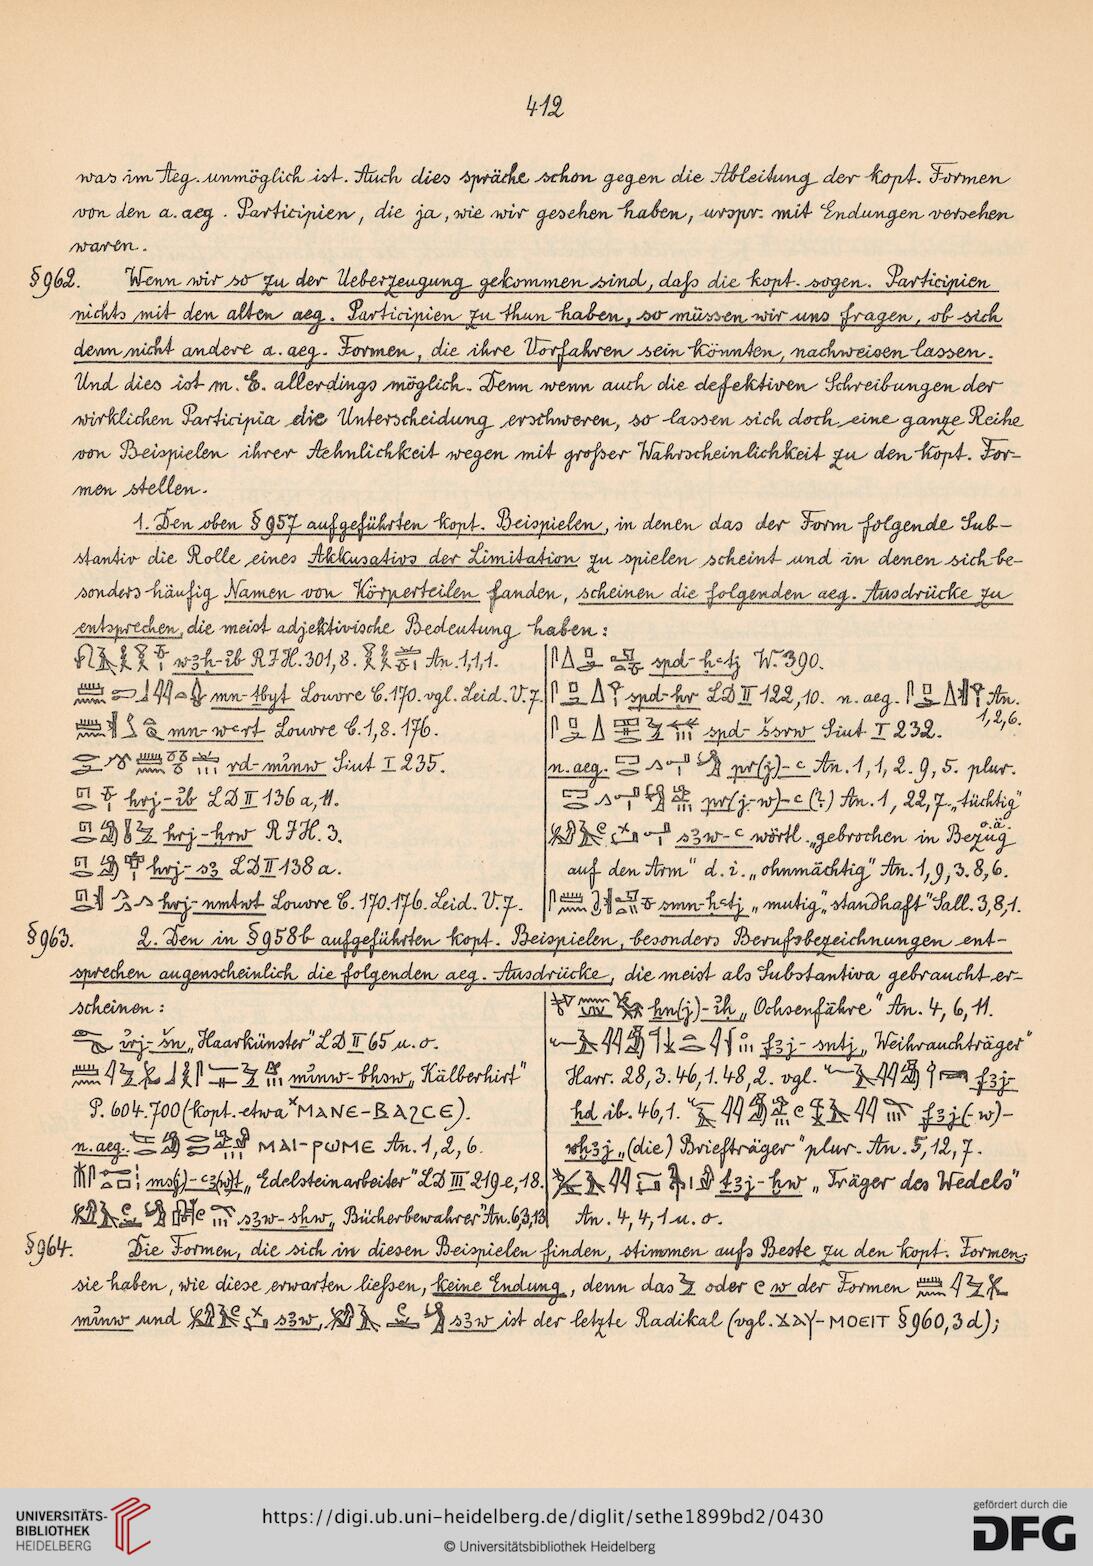 412
was im Aeg. unmöglich ist. Auch dies spräche schon gegen die Ableitung der kopt. Formen
von den a. aeg. Participien, die ja, wie wir gesehen haben, urspr. mit Endungen versehen
waren.
§962. Wenn wir so zu der Ueberzeugung gekommen sind, daſs die kopt. sogen. Participien
nichts mit den alten aeg. Participien zu thun haben, so müssen wir uns fragen, ob sich
denn nicht andere a. aeg. Formen, die ihre Vorfahren sein könnten, nachweisen lassen.
Und dies ist m. E. allerdings möglich. Denn wenn auch die defektiven Schreibungen der
wirklichen Participia die Unterscheidung erschweren, so lassen sich doch eine ganze Reihe
von Beispielen ihrer Aehnlichkeit wegen mit groſser Wahrscheinlichkeit zu den kopt. For-
men stellen.
1. Den oben §957 aufgeführten kopt. Beispielen, in denen das der Form folgende Sub-
stantiv die Rolle eines Akkusativs der Limitation zu spielen scheint und in denen sich be-
sonders häufig Namen von Körperteilen fanden, scheinen die folgenden aeg. Ausdrücke zu
entsprechen, die meist adjektivische Bedeutung haben:
wꜣḥ-ỉb R.I.H. 301,8. An. 1,1,1.
mn-ṯbyt Louvre C. 170. vgl. Leid. V. 7.
mn-wꜥrt Louvre C. 1,8. 176.
rd-mỉnw Siut I 235.
hrj-ỉb LD II 136 a, 11.
hrj-ḫrw R.I.H. 3.
hrj-sꜣ LD II 138 a.
hrj-nmtwt Louvre C. 170. 176. Leid. V. 7.
spd-ḥꜥtj W. 390.
spd-ḥr LD II 122, 10. n. aeg. An.
1,2,6.
spd-šsrw Siut I 232.
n. aeg. pr(j)-ꜥ An. 1, 1, 2. 9, 5. plur.
pr(j-w)-ꜥ (?) An. 1, 22, 7. „tüchtig"
o. ä.
sꜣw-ꜥ wörtl. „gebrochen in Bezug
auf den Arm" d. i. „ohnmächtig" An. 1, 9, 3. 8, 6.
smn-ḥꜥtj „mutig", „standhaft" Sall. 3, 8, 1.
§963. 2. Den in §958b aufgeführten kopt. Beispielen, besonders Berufsbezeichnungen ent-
sprechen augenscheinlich die folgenden aeg. Ausdrücke, die meist als Substantiva gebraucht er-
scheinen:
ỉrj-šn „Haarkünster" LD II 65 u. o.
mỉnw-bḥsw „Kälberhirt"
P. 604. 700 (kopt. etwa ˣⲘⲀⲚⲈ-ⲂⲀϨⲤⲈ).
n. aeg. ⲘⲀⲒ-ⲢⲰⲘⲈ An. 1, 2, 6.
„Edelsteinarbeiter" LD III 219 e, 18.
sꜣw-sḫw „Bücherbewahrer" An. 6,3,13
ḫn(j)-ỉḥ „Ochsenfähre" An. 4, 6, 11.
fꜣj-sntj „Weihrauchträger"
Harr. 28, 3. 46, 1. 48, 2. vgl. fꜣj-
ḥd ib. 46, 1. fꜣj(-w)-
„(die) Briefträger" plur. An. 5, 12, 7.
ṯꜣj-ḫw „Träger des Wedels"
An. 4, 4, 1 u. o.
§964. Die Formen, die sich in diesen Beispielen finden, stimmen aufs Beste zu den kopt. Formen;
sie haben, wie diese erwarten lieſsen, keine Endung, denn das oder w der Formen
mỉnw und sꜣw, sꜣw ist der letzte Radikal (vgl. ⲬⲀⲨ-ⲘⲞⲈⲒⲦ §960, 3 d);
UNIVERSITÄTS-
BIBLIOTHEK
HEIDELBERG
https://digi.ub.uni-heidelberg.de/diglit/sethe1899bd2/0430
© Universitätsbibliothek Heidelberg
gefördert durch die
DFG